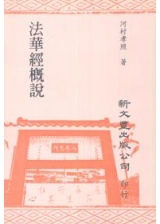 河村孝照 著
法華經概說
新文豐出版公司 印行